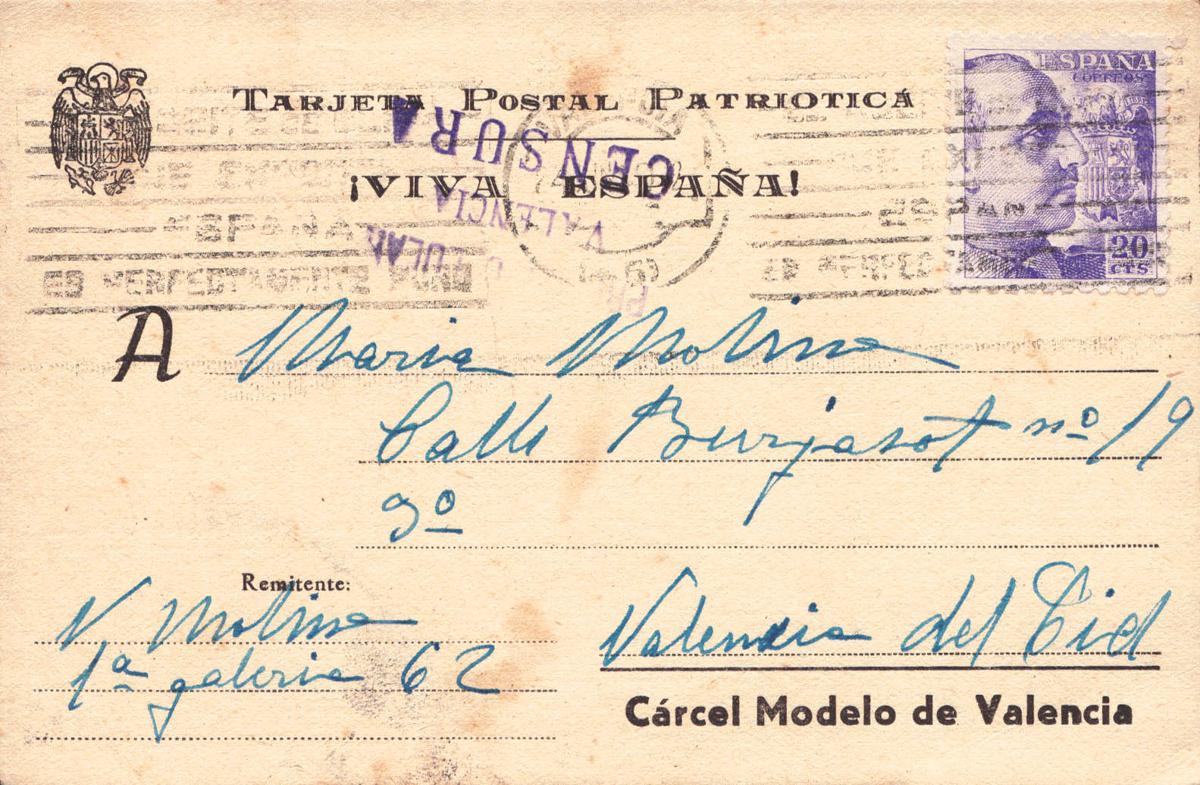 TARJETA POSTAL PATRIOTICÁ
ESPAÑA
CORREOS
CENSURA
¡VIVA ESPAÑA!
VALENCIA
ESPAÑA
ESPAÑ
20
CTS
ES PERFECTAMENTE
A Maria Molina
Calle Burjasot nº 19
9º
Remitente:
V. Molina
1ª galeria 62
Valencia del Cid
Cárcel Modelo de Valencia